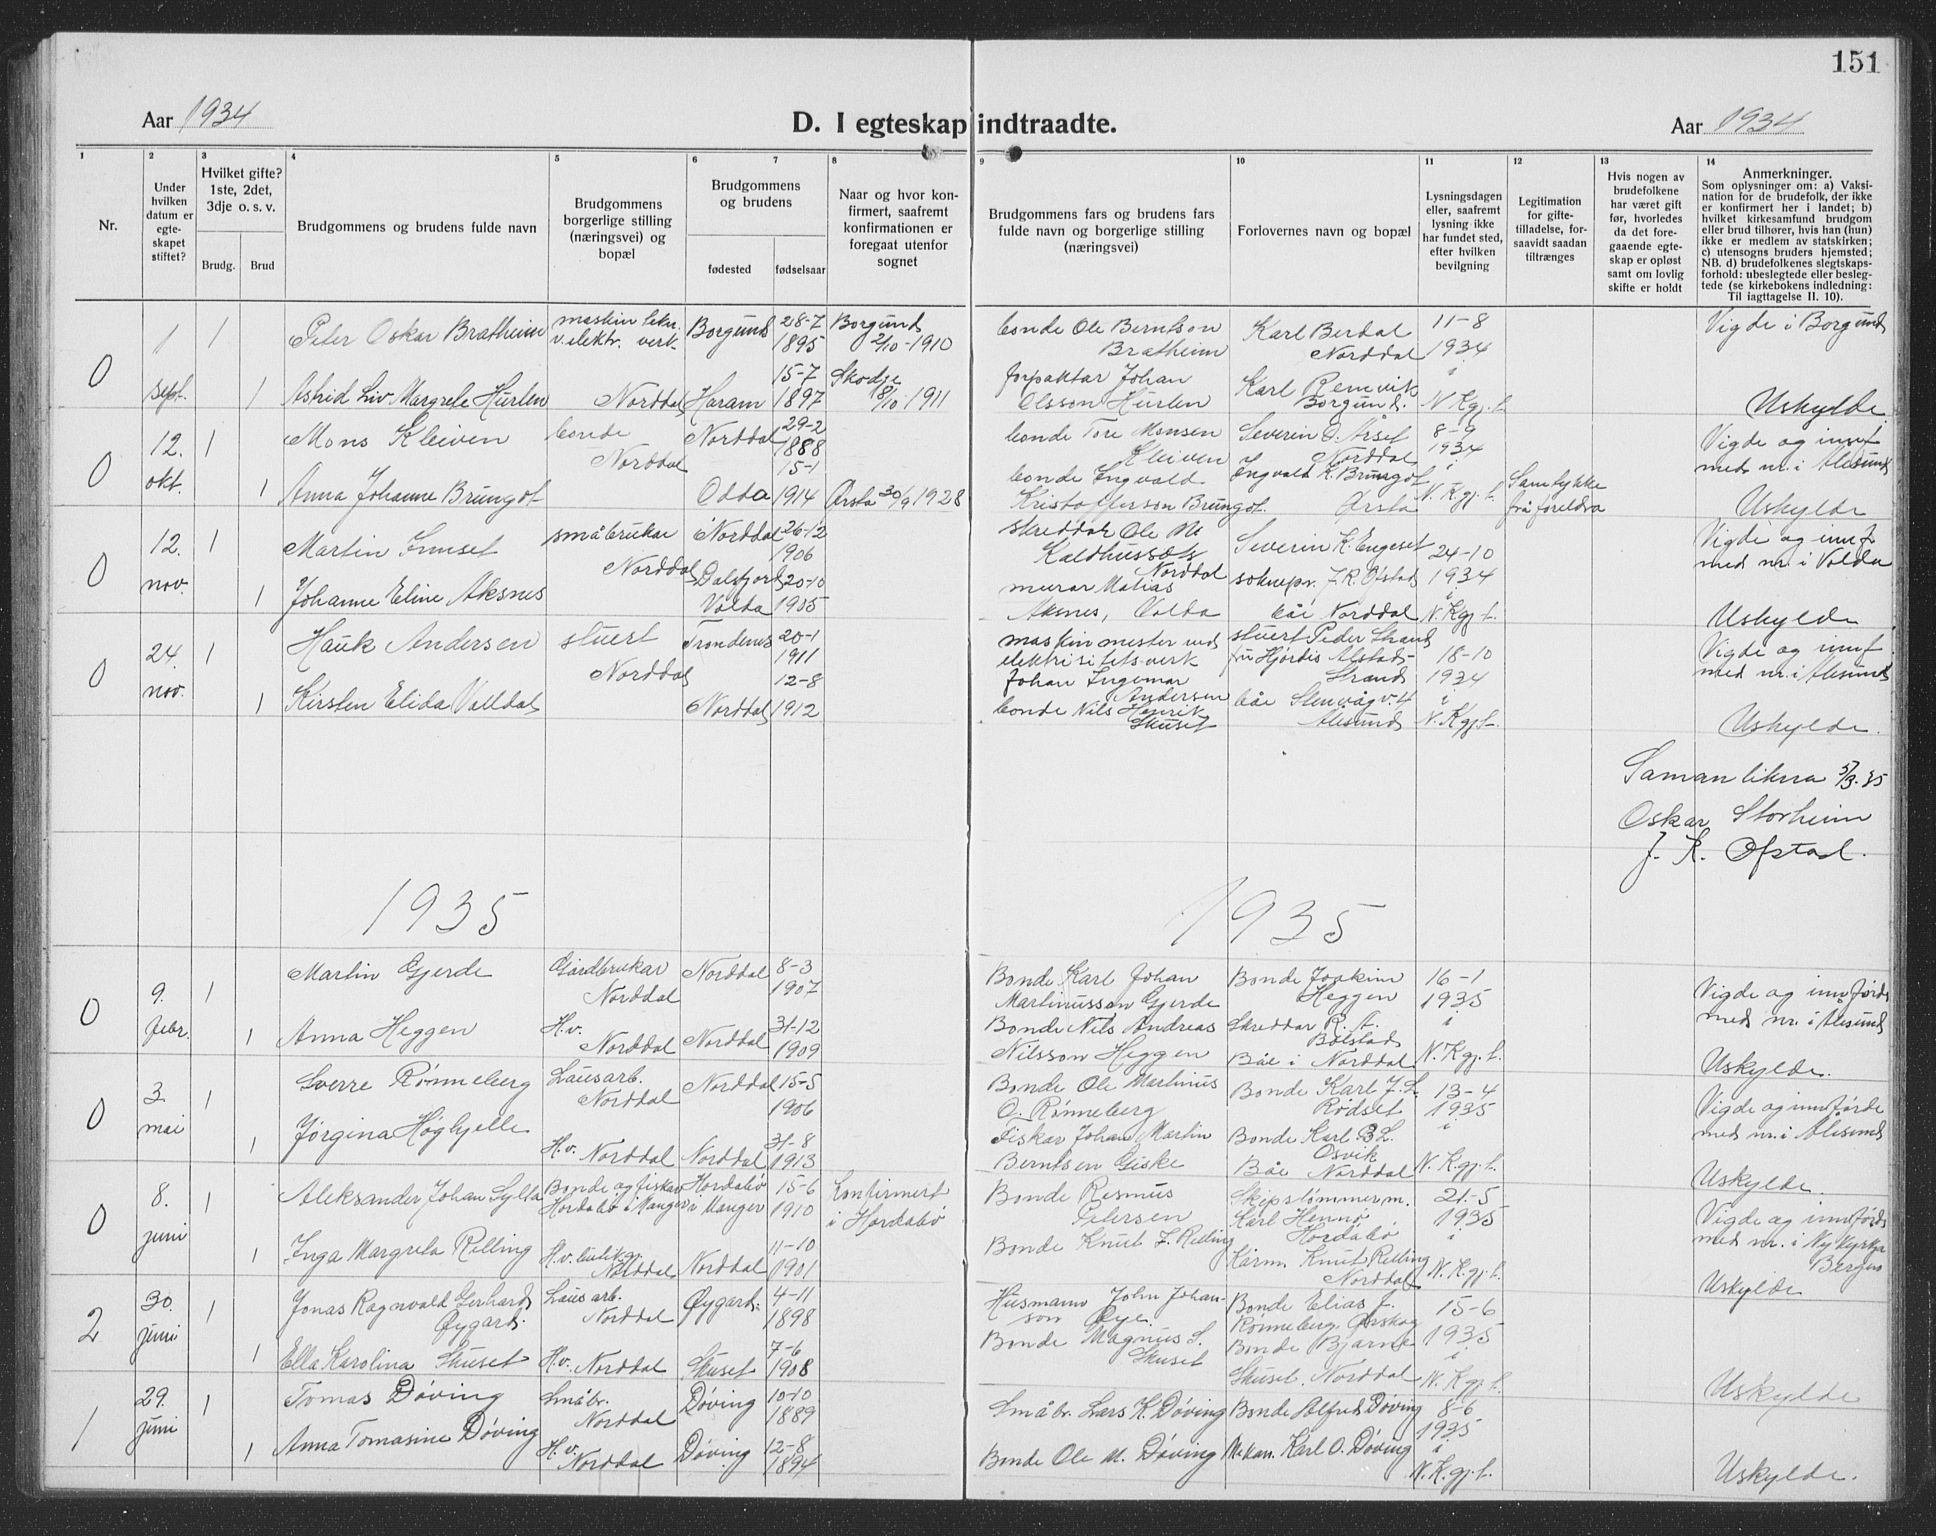 151
Aar 1934
D. I egteskap indtraadte.
Aar 1934
1
2
3
4
5
6
7
8
9
10
11
12
13
14
Nr.
Under
hvilken
datum er
egte-
skapet
stiftet?
Hvilket gifte?
1ste, 2det,
3dje o. s. v.
Brudg.
Brud
Brudgommens og brudens fulde navn
Brudgommens
borgerlige stilling
(næringsvei) og
bopæl
Brudgommens
og brudens
fødested
fødselsaar
Naar og hvor kon-
firmert, saafremt
konfirmationen er
foregaat utenfor
sognet
Brudgommens fars og brudens fars
fulde navn og borgerlige stilling
(næringsvei)
Forlovernes navn og bopæl
Lysningsdagen
eller, saafremt
lysning ikke
har fundet sted,
efter hvilken
bevilgning
Legitimation
for gifte-
tilladelse, for-
saavidt saadan
tiltrænges
Hvis nogen av
brudefolkene
har været gift
før, hvorledes
da det fore-
gaaende egte-
skap er opløst
samt om lovlig
skifte er holdt
Anmerkninger.
Som oplysninger om: a) Vaksi-
nation for de brudefolk, der ikke
er konfirmert her i landet; b)
hvilket kirkesamfund brudgom
eller brud tilhører, hvis han (hun)
ikke er medlem av statskirken;
c) utensogns bruders hjemsted;
NB. d) brudefolkenes slegtskaps-
forhold: ubeslegtede eller besleg-
tede (se kirkebokens indledning:
Til iagttagelse II. 10).
0
1
sept.
1
1
Peter Oskar Bratheim
Astrid Liv Margrete Hurlen
maskintekn.
v. elektr. verk
Norddal
Borgund
Haram
28-7
1895
15-7
1897
Borgund
2/10-1910
Skodje
8/10-1911
bonde Ole Berntson
Bratheim
forpaktar Johan
Olsson Hurlen
Karl Berdal
Norddal
Karl Remvik
Borgund.
11-8
1934
i
N. Kgj. l.
Vigde i Borgund
Uskylde
0
12.
okt.
1
1
Mons Kleiven
Anna Johanne Brungot
bonde
Norddal
Norddal
Odda
29-2
1888
15-1
1914
Ørsta 30/9 1928
bonde Tore Monsen
Kleiven
bonde Ingvald
Kristofferson Brungot.
Severin O. Årset
Norddal
Ingvald K. Brungot
Ørsta
8-9
1934
i
N. Kgj. l.
Samtykke
frå foreldra
Vigde og innf
med nr. i Ålesund
Uskylde
0
12.
nov.
1
1
Martin Innset
Johanne Eline Aksnes
småbrukar
Norddal
Norddal
Dalsfjord
Volda
26-12
1906
20-10
1905
skreddar Ole M.
Kaldhussæts
Norddal
murar Matias
Aksnes, Volda
Severin K. Engeset
soknepr. J. R. Ofstad
båe Norddal
24-10
1934
i
N. Kgj. l.
Vigde og innf
med nr. i Volda
Uskylde
0
24.
nov.
1
1
Hauk Andersen
Kirsten Elida Valldal
stuert
Norddal
Trondenes
Norddal
20-1
1911
12-8
1912
maskinmester ved
elektrisitetsverk
Johan Ingemar
Andersen
bonde Nils Henrik
Skuset
stuert Peder Strand
fru Hjørdis Alstad-
Strand
båe Stenvåg v. 4
Ålesund
18-10
1934
i
N. Kgj. l.
Vigde og innf
med nr. i Ålesund
Uskylde.
Samanlikna 5/3-35
Oskar Storheim
J. R. Ofstad.
1935
1935
0
9.
febr.
1
1
Martin Gjerde
Anna Heggen
Gardbrukar
Norddal
H.v.
Norddal
Norddal
Norddal
8-3
1907
31-12
1909
Bonde Karl Johan
Martinusson Gjerde
Bonde Nils Andreas
Nilsson Heggen
Bonde Joakim
Heggen
Skreddar R. A.
Bolstad
Båe i Norddal
16-1
1935
i
N. Kgj. l.
Vigde og innførde
med nr. i Ålesund
Uskylde.
0
3.
mai
1
1
Sverre Rønneberg
Jørgina Høghjelle
Lausarb.
Norddal
H.v. Norddal
Norddal
Norddal
15-5
1906
31-8
1913
Bonde Ole Martinus
O. Rønneberg
Fiskar Johan Martin
Berntsen Giske
Bonde Karl J. L.
Rødset
Bonde Karl B L.
Osvik
Båe Norddal
13-4
1935
i
N. Kgj. l.
Vigde og innførde
med nr. i Ålesund
Uskylde
0
8.
juni
1
1
Aleksander Johan Sylta
Inga Margreta Relling
Bonde og fiskar
Hordabø i Manger
H.v. butikn.
Norddal
Hordabø
i Manger
Norddal
15-6
1910
11-10
1901
Konfirmert
i Hordabø
Bonde Rasmus
Petersen
Bonde Knut L. Relling
Skipstømmerm.
Karl Hennø
Hordabø
Knut Relling
Norddal
21-5
1935
i
N. Kgj. l.
Vigde og innførde
med nr. i Nykyrkja
Bergen
Uskylde
2
30.
juni
1
1
Jonas Ragnvald Gerhard
Øygard.
Ella Karolina Skuset
Lausarb.
Norddal
H.v. Norddal
Øygard
Skuset
4-11
1898
7-6
1908
Husmann John Johan-
son Øye.
Bonde Magnus S.
Skuset
Bonde Elias J.
Rønneberg, Ørskog
Bonde Bjarne
Skuset. Norddal
15-6
1935
i
N. Kgj. l.
Uskylde
1
29.
juni
1
1
Tomas Døving
Anna Tomasine Døving
Småbr.
Norddal
H.v.
Norddal
Døving
Døving
10-10
1889
12-8
1894
Småbr. Lars K. Døving
Bonde Ole M. Døving
Bonde Alfred Døving
Karl O. Døving
8-6
1935
i
N. Kgj. l.
Uskylde.